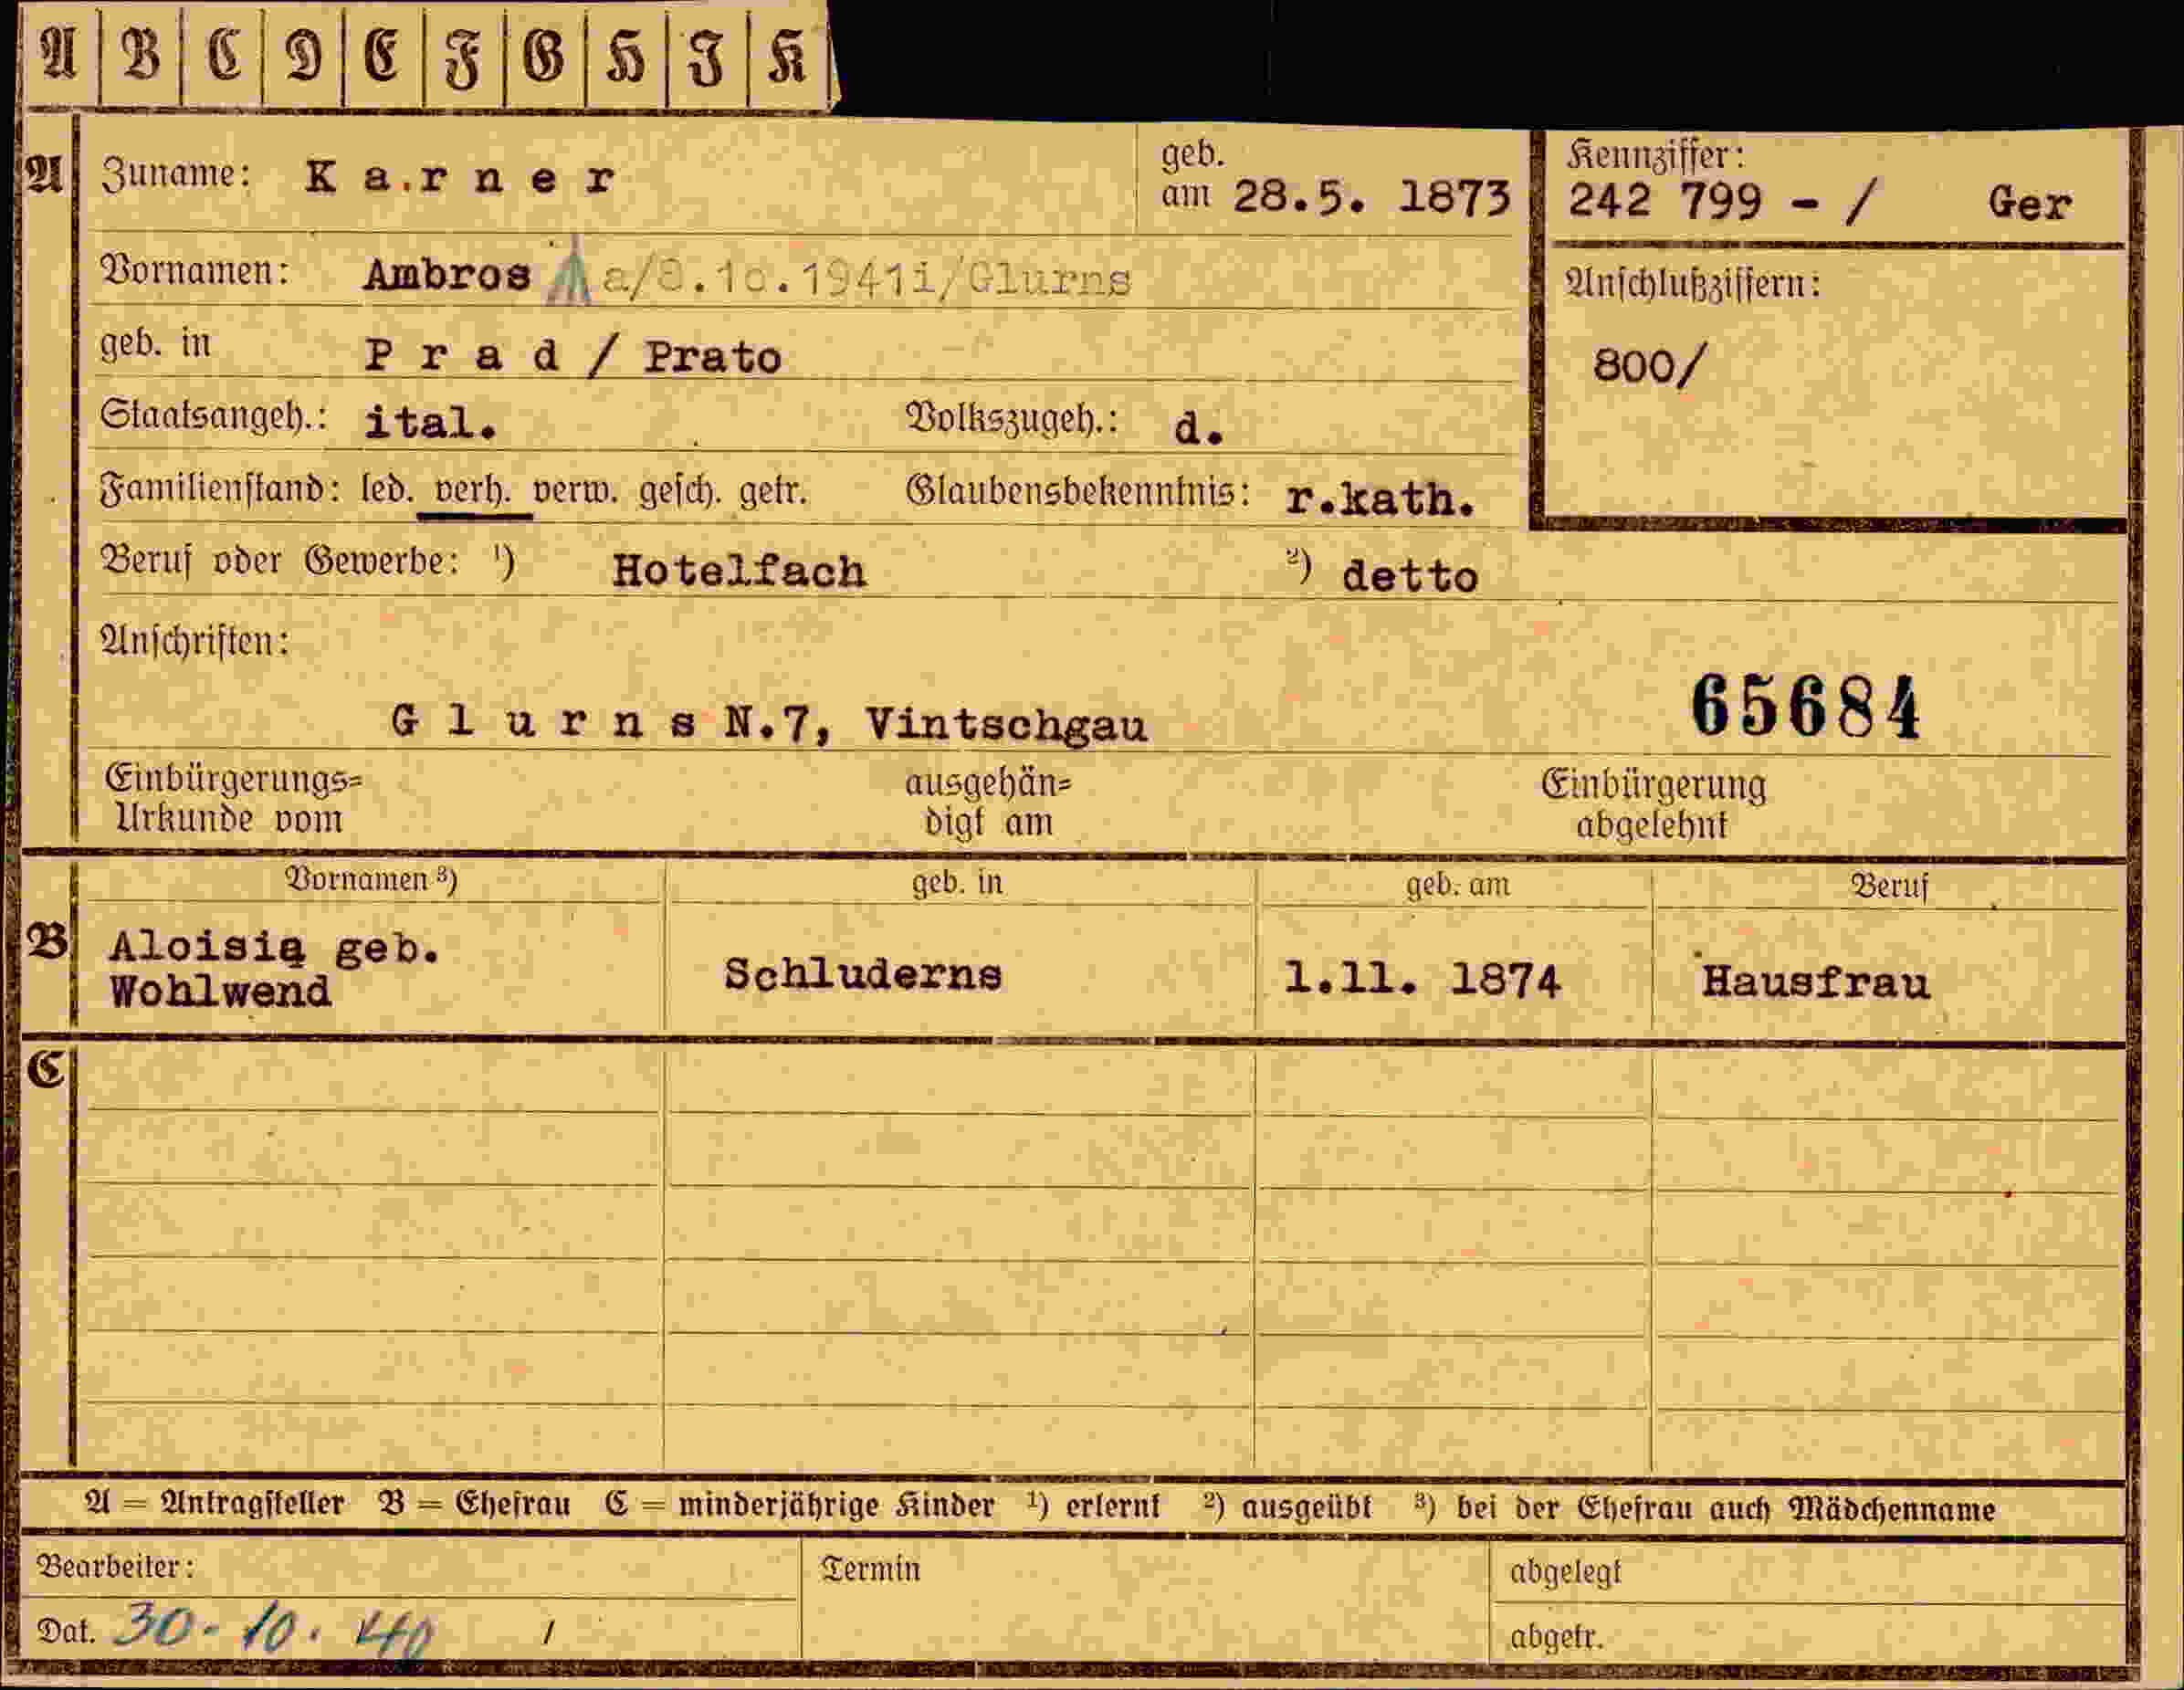 A B C D E F G H I K
A Zuname: K a.r n e r geb. am 28.5. 1873 Kennziffer: 242 799 - / Ger
Vornamen: Ambros a/8.10.1941i/Glurns Anschlußziffern:
geb. in P r a d / Prato 800/
Staatsangeh.: ital. Volkszugeh.: d.
Familienstand: led. verh. verw. gesch. getr. Glaubensbekenntnis: r.kath.
Beruf oder Gewerbe: ¹) Hotelfach ²) detto
Anschriften:
G l u r n s N.7, Vintschgau 65684
Einbürgerungs= ausgehän= Einbürgerung
Urkunde vom digt am abgelehnt
Vornamen ³) geb. in geb. am Beruf
B Aloisia geb.
Wohlwend Schluderns 1.11. 1874 Hausfrau
C
A = Antragsteller B = Ehefrau C = minderjährige Kinder ¹) erlernt ²) ausgeübt ³) bei der Ehefrau auch Mädchenname
Bearbeiter: Termin abgelegt
Dat. 30. 10. 40 / abgetr.